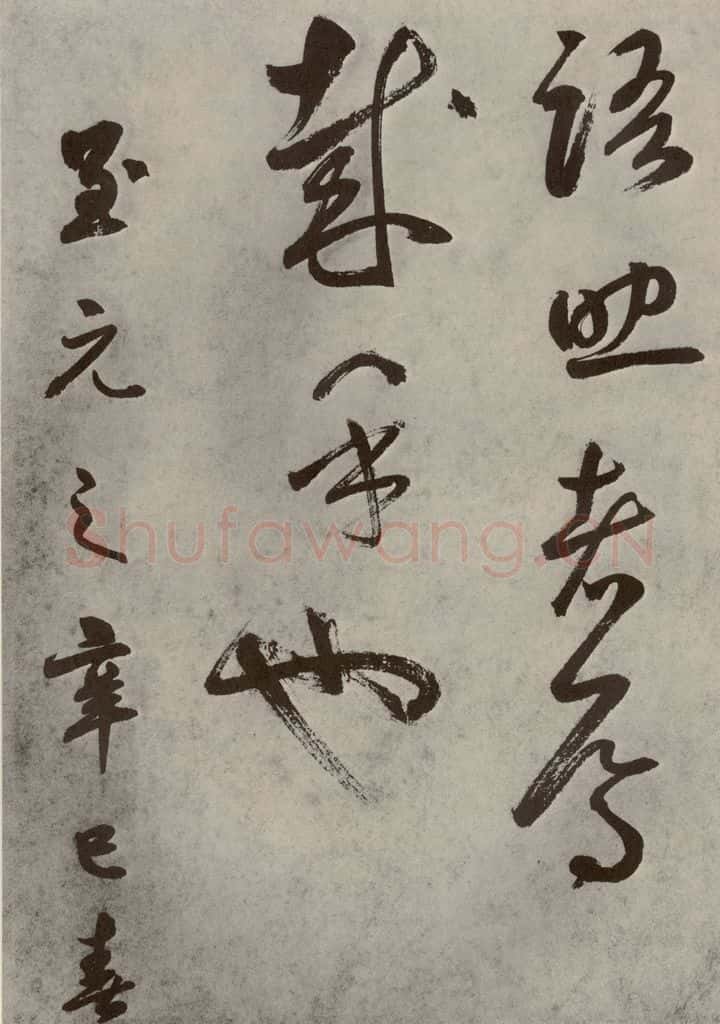 語助者焉
哉乎也
至元之辛巳春
Shufawang.CN